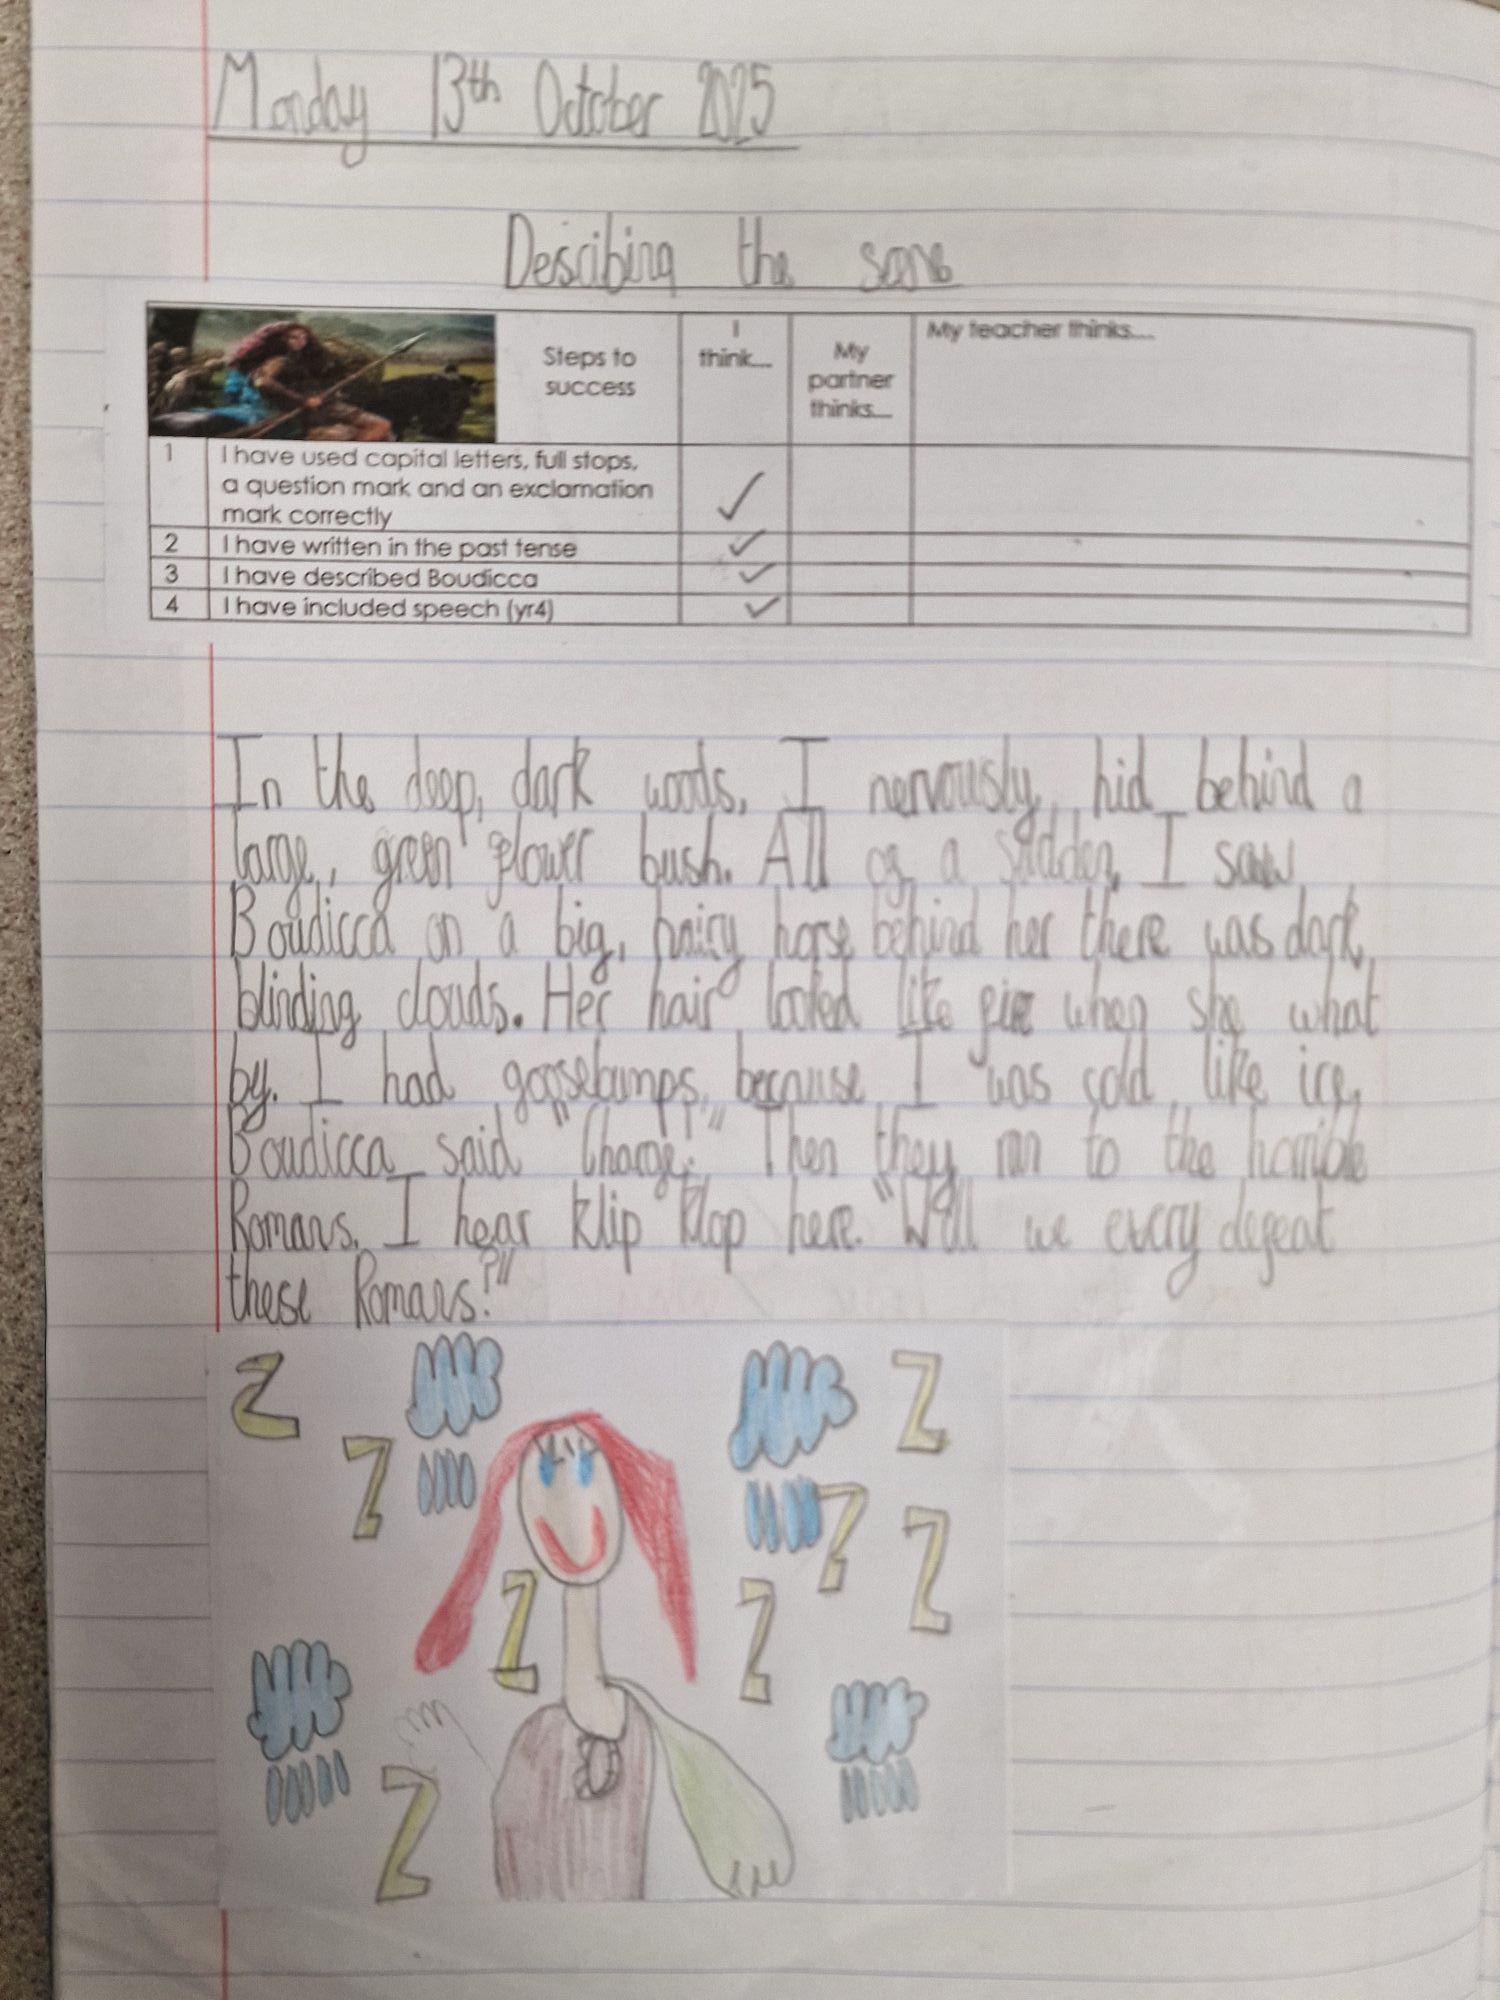 Monday 13th October 2025
Describing the sene
Steps to success
I think....
My partner thinks....
My teacher thinks....
1 I have used capital letters, full stops, a question mark and an exclamation mark correctly
2 I have written in the past tense
3 I have described Boudicca
4 I have included speech (yr4)
In the deep, dark woods, I nervously hid behind a
large, green flower bush. All of a sudden, I saw
Boudicca on a big, hairy horse behind her there was dark,
blinding clouds. Her hair looked like fire when she what
by. I had goosebumps, because I was cold like ice,
Boudicca said "Charge!" Then they ran to the horrible
Romans. I hear klip klop here. "Will we every defeat
these Romans?"